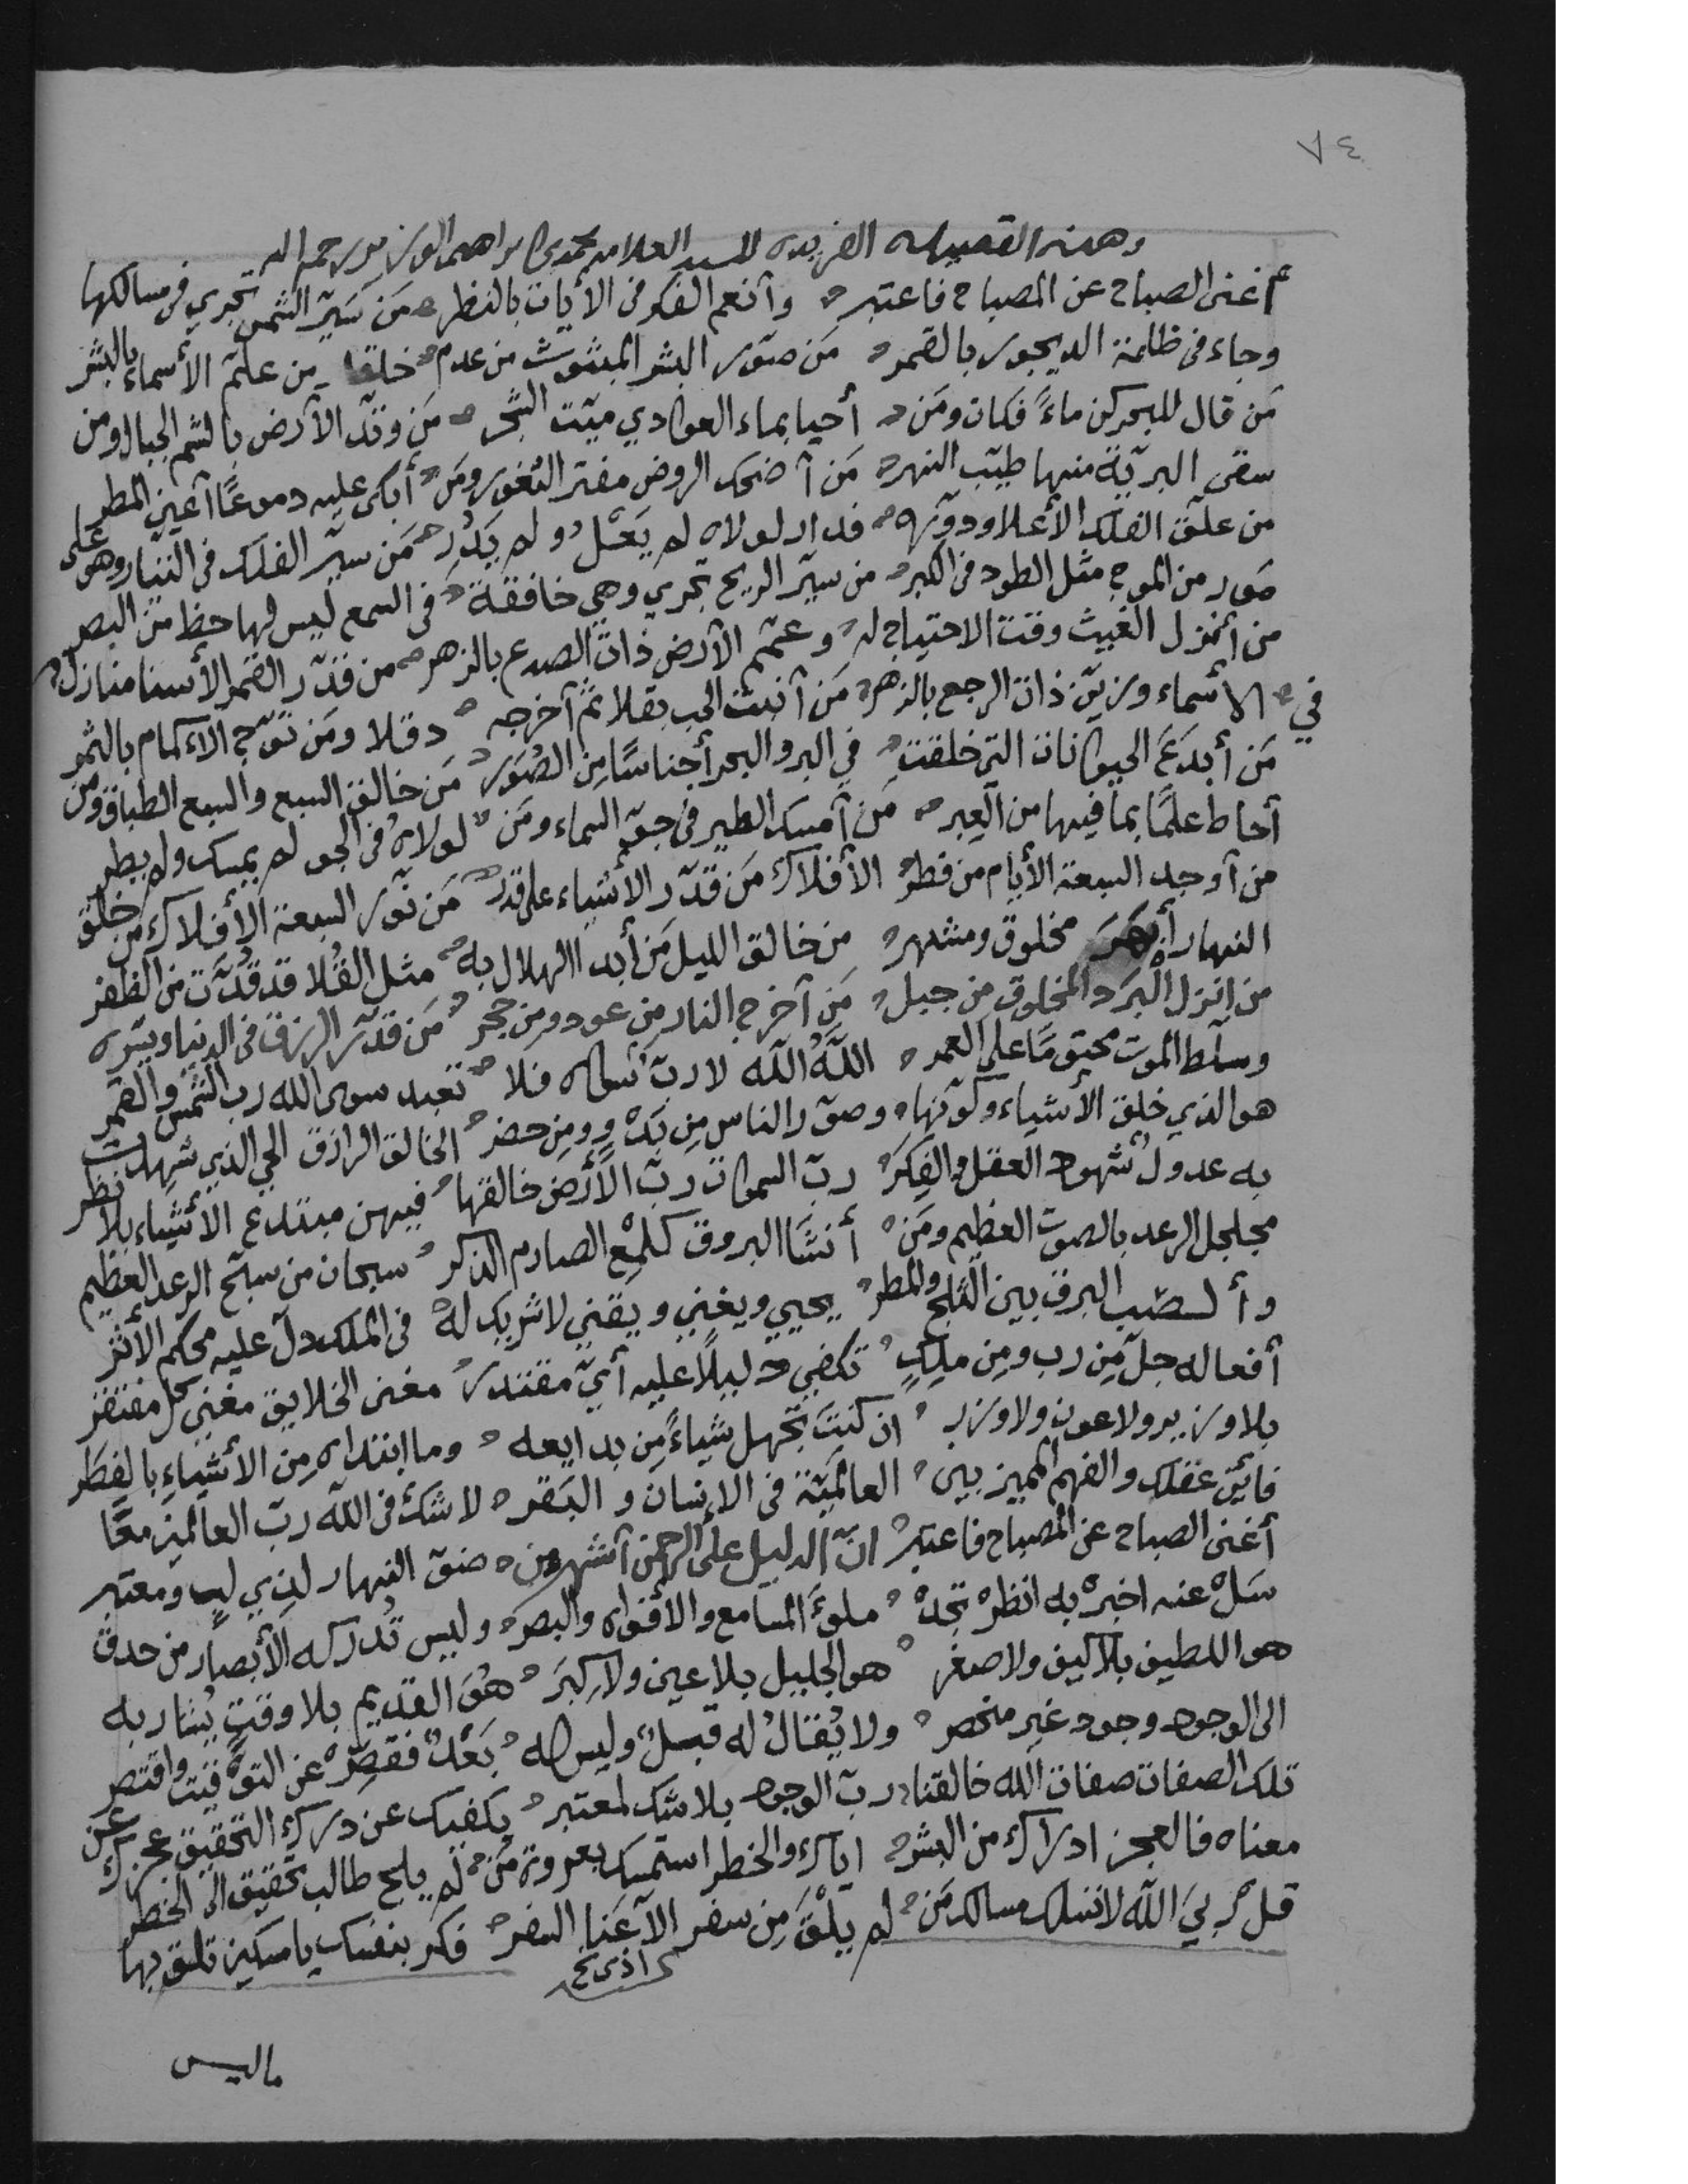 ٨٤
وهذه القصيدة الفريده للسيد العلامه محمد بن ابراهيم الوزير رحمه الله
أغنى الصباح عن المصباح فاعتبر وأنعم الفكر في الأيات بالنظر من سيّر الشمس تجري في مسالكها
وجاء في ظلمة الديجور بالقمر من صوّر البشر المبثوث من عدم خلقا من علّم الأسماء بالبشر
من قال للبحر كن ماءً فكان ومن أحيا بماء الغوادي ميّت الشجر من وتّد الأرض بالشم الجبال ومن
سقى البريّة منها طيّب النهر من أضحك الروض مفتر الثغور ومن أبكى عليه دموعًا أعين المطر
من علّق الفلك الأعلا ودوّره فدار لولاه لم يَعْلُ ولم يَدُرِ من سيّر الفلك في التيار وهو على
صور من الموج مثل الطود في الكبر من سيّر الريح تجري وهي خافقة في السمع ليس لها حظ من البصر
من أنزل الغيث وقت الاحتياج له وعمّم الأرض ذات الصدع بالزهر من قدّر القمر الأسنا منازله
في الأسماء وزيّن ذات الرجع بالزهر من أنبت الحب بقلا ثم أخرجه دقلا ومن توّج الأكمام بالثمر
من أبدع الحيوانات التي خلقت في البر والبحر أجناسًا من الصُوَر من خالق السبع والسبع الطباق ومن
أحاط علمًا بما فيها من العِبر من أمسك الطير في جوّ السماء ومن لولاه في الجو لم يمسك ولم يطر
من أوجد السبعة الأيام من فطر الأفلاك من قدّر الأشياء على قدر من نوّر السبعة الأفلاك من خلق
النهار أبهَرَ مخلوق ومشتهر من خالق الليل من أبدا الهلال به مثل القُلا قد قُدّت من الظفر
من انزل البَرَد المخلوق من جبل من أخرج النار من عود ومن حجر من قدّر الرزق في الدنيا ويسّره
وسلّط الموت محتومًا على العمر اللّهُ اللّه لا ربّ سواه فلا تعبد سوى الله رب الشمس والقمر
هو الذي خلق الأشياء وكوّنها وصوّر الناس من بَدْوٍ ومن حضر الخالق الرازق الحي الذي شهدت
به عدول شهود العقل والفِكَرِ ربّ السموات ربّ الأرض خالقها فيهن مبتدع الأشياء بلا نظر
مجلجل الرعد بالصوت العظيم ومن أنشَا البروق كلمْع الصارم الذكر سبحان من سبّح الرعد العظيم
و البرق بين الثلج والمطر يحيي ويغني ويقني لا شريك له في الملك دلّ عليه محكم الأثر
أفعاله جلّ من رب ومن ملِكٍ تكفي دليلاً عليه أيّ مقتدر مغنى الخلايق مغني كل مفتقر
بلا وزير ولا عون ولا وزر ان كنت تجهل شياءً من بدايعه وما ابتداه من الأشياء بالفطر
فأين عقلك والفهم المميز بين العالميّة في الانسان والبَقر لا شك في اللّه ربّ العالمين معًا
أغنى الصباح عن المصباح فاعتبر انّ الدليل على الرحمن أشهر من ضوّ النهار لذي لب ومعتبر
سَلْ عنه اخبر به انظر تجد ملؤ المسامع والأفواه والبصر وليس تُدركه الأبصار من حدق
هو اللطيف بلا كيف ولا صغر هو الجليل بلا عين ولا كِبَر هُوَ القديم بلا وقتٍ يُشار به
الى الوجود وجود غير منحصر ولا يُقالُ له قبلُ وليس له بَعْدُ فقصّر عن التوقيت واقتصر
تلك الصفات صفات الله خالقنا ربّ الوجود بلا شك لمعتبر يكفيك عن درك التحقيق عجزك عن
معناه فالعجز ادراك من البشر اياك والخطر استمسك بعروة من لم يلج طالب تحقيق الى الخطر
قل ربيَ اللّه لا تسلك مسالك من لم يلْقَ من سفر الا عَنا السفر فكر بنفسك يا مسكين تلق بها
اذى نخ
ما ليس